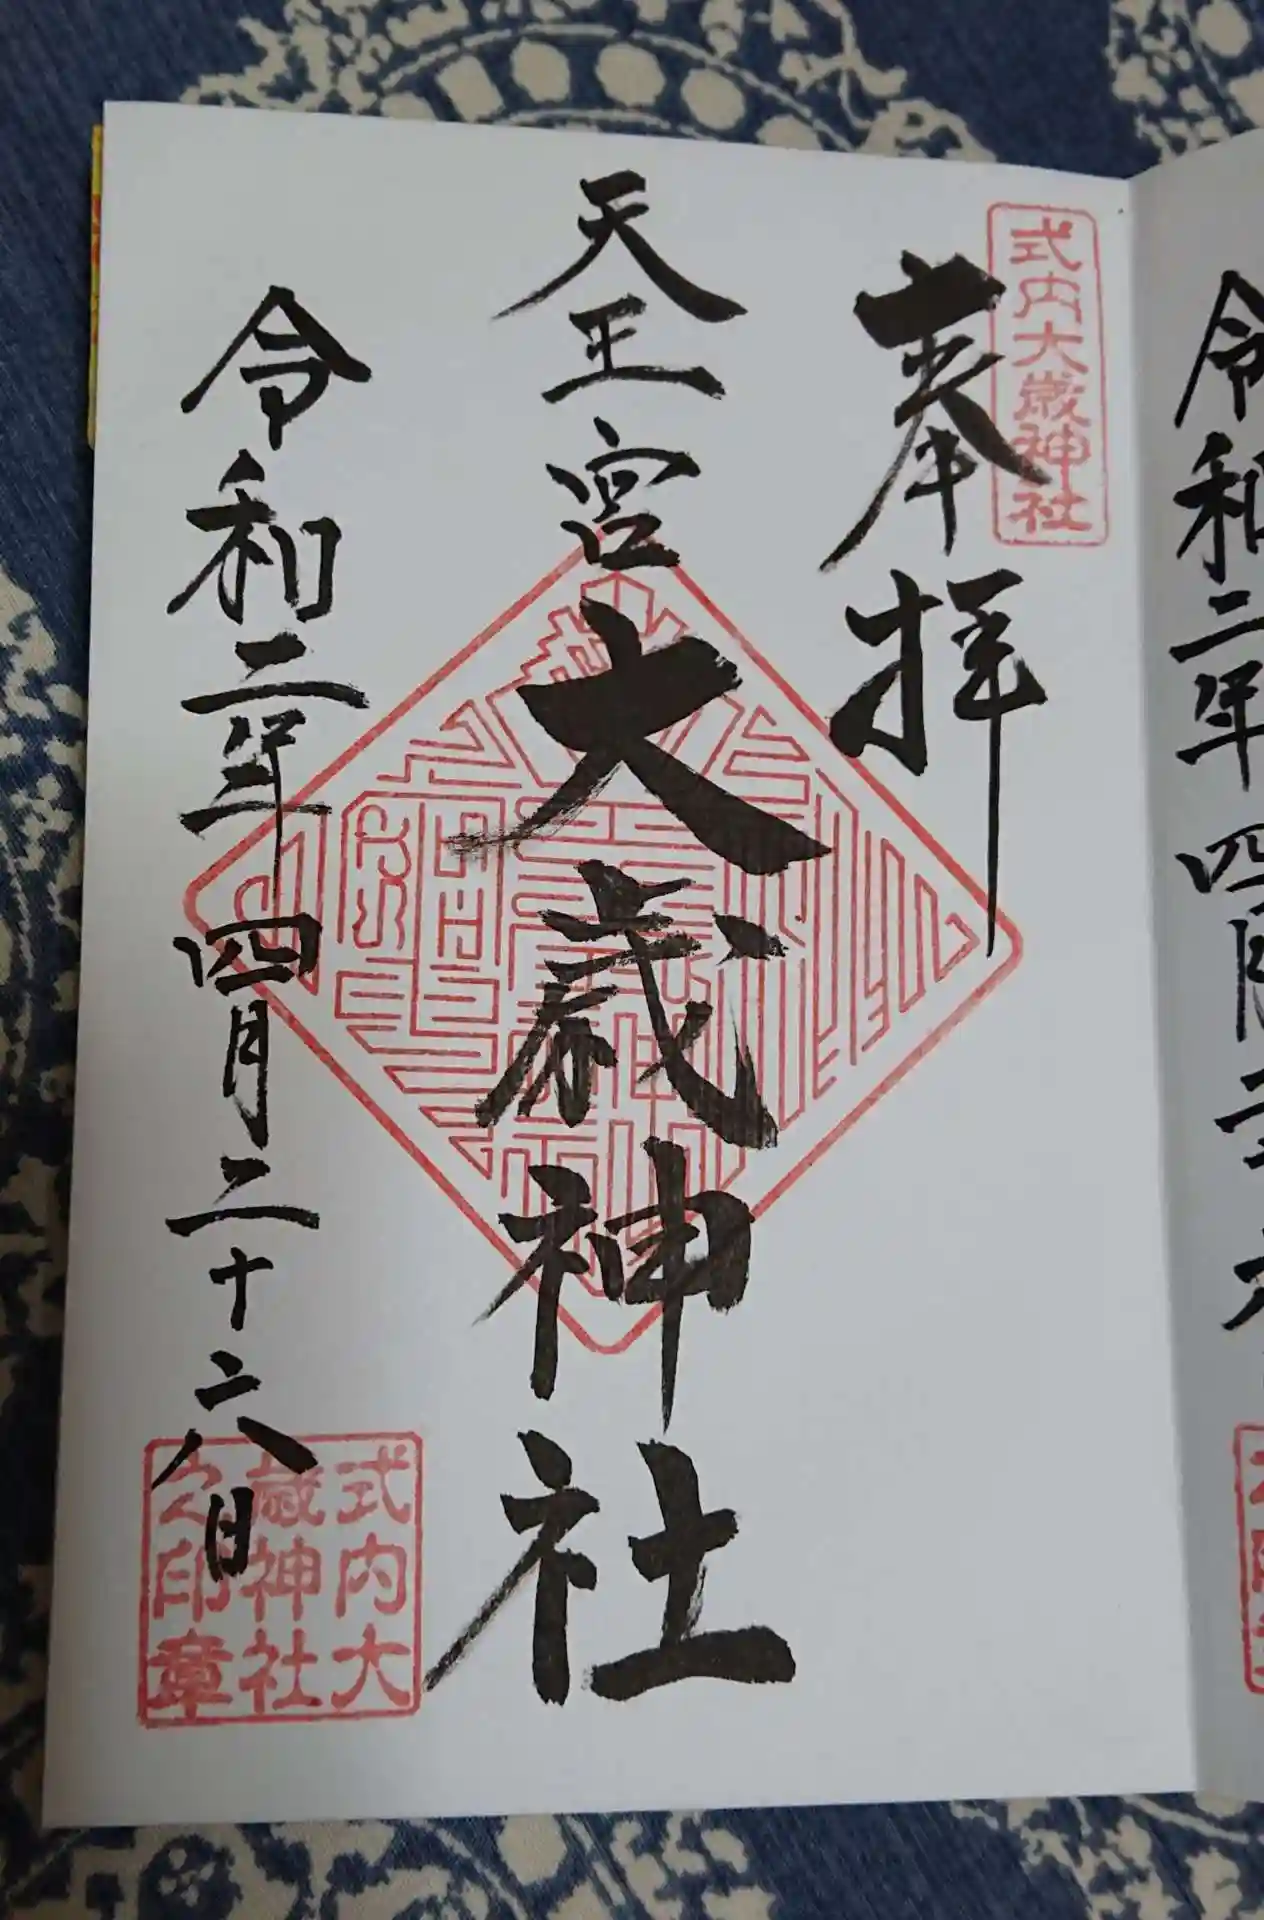 式内大歳神社
奉拝
天王宮大歳神社
令和二年四月二十六日
式内大
歳神社
之印章
令和二年四月二十六